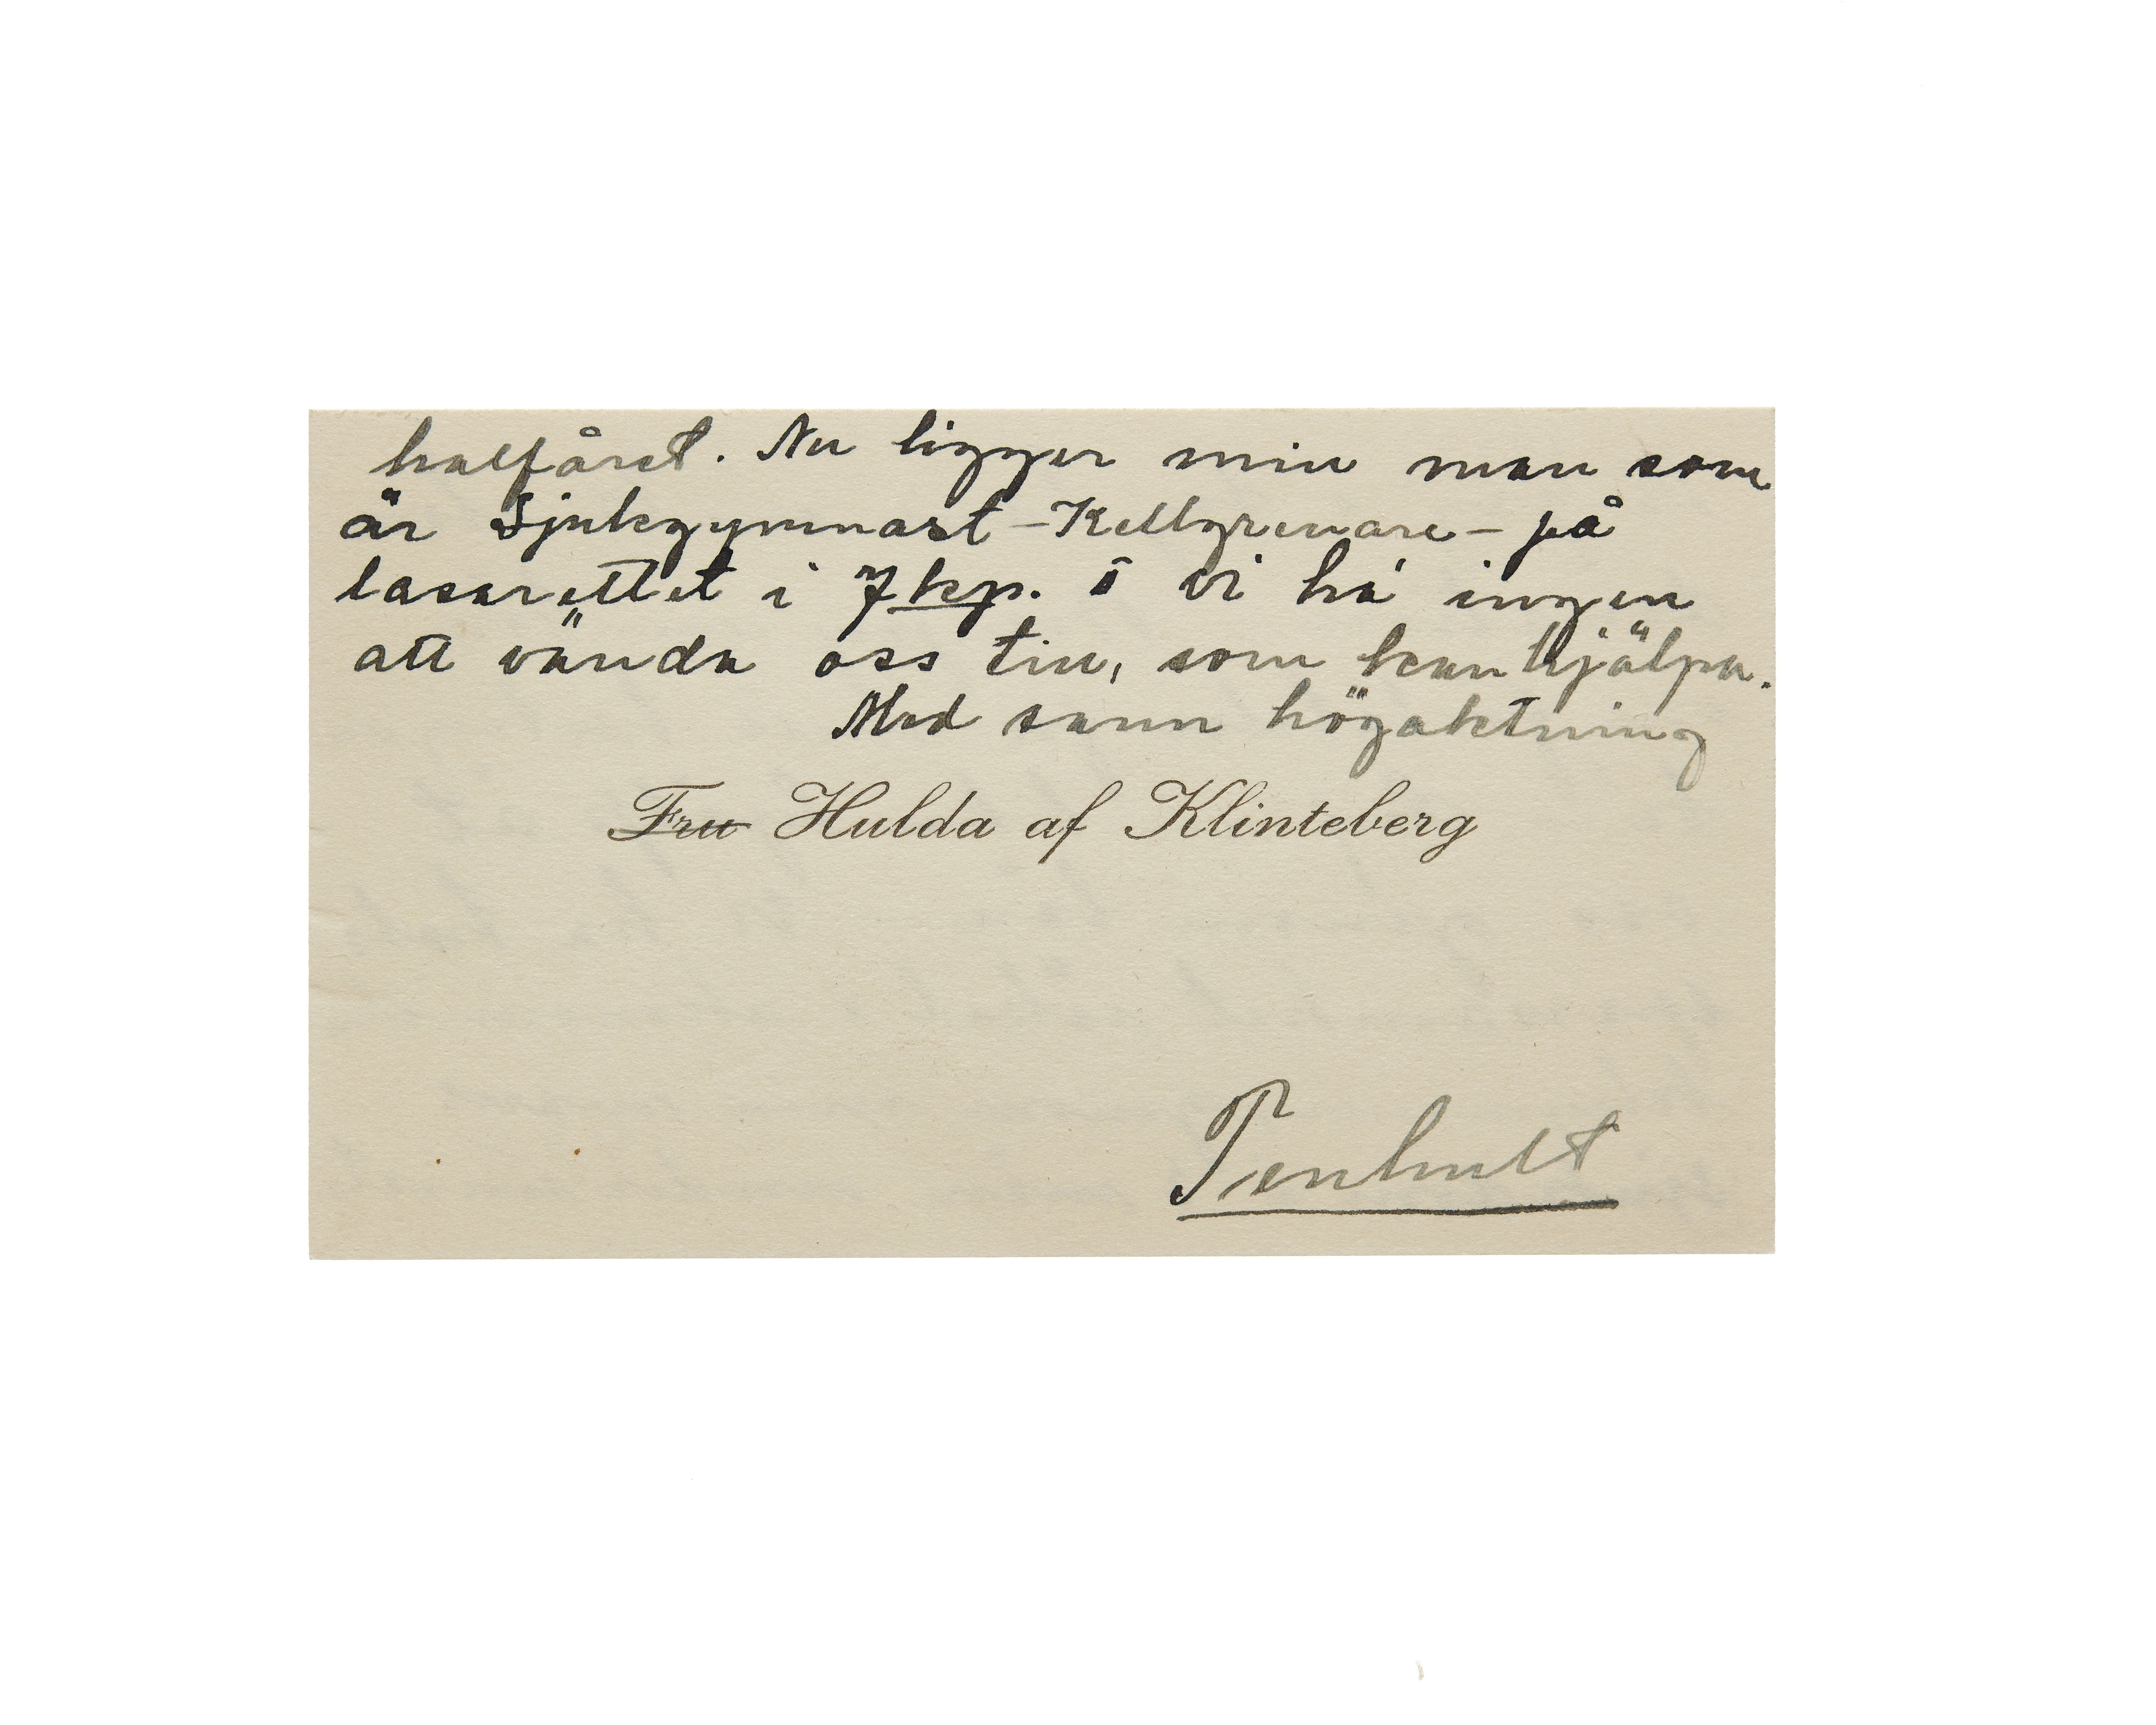 halfåret. Nu ligger min man som
är Sjukgymnast – Kellgrenare – på
lasarettet i Jkp. o vi ha ingen
att vända oss till, som kan hjälpa.
Med sann högaktning
Fru Hulda af Klinteberg
Tenhult